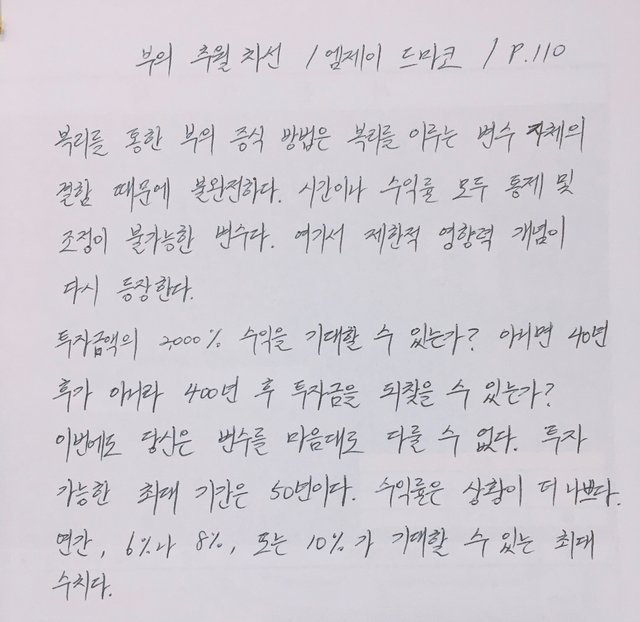 부의 추월 차선 / 엠제이 드마코 / P.110
복리를 통한 부의 증식 방법은 복리를 이루는 변수 자체의
결함 때문에 불완전하다. 시간이나 수익률 모두 통제 및
조정이 불가능한 변수다. 여기서 제한적 영향력 개념이
다시 등장한다.
투자금액의 2,000% 수익을 기대할 수 있는가? 아니면 40년
후가 아니라 400년 후 투자금을 되찾을 수 있는가?
이번에도 당신은 변수를 마음대로 다룰 수 없다. 투자
가능한 최대 기간은 50년이다. 수익률은 상황이 더 나쁘다.
연간, 6%나 8%, 또는 10%가 기대할 수 있는 최대
수치다.